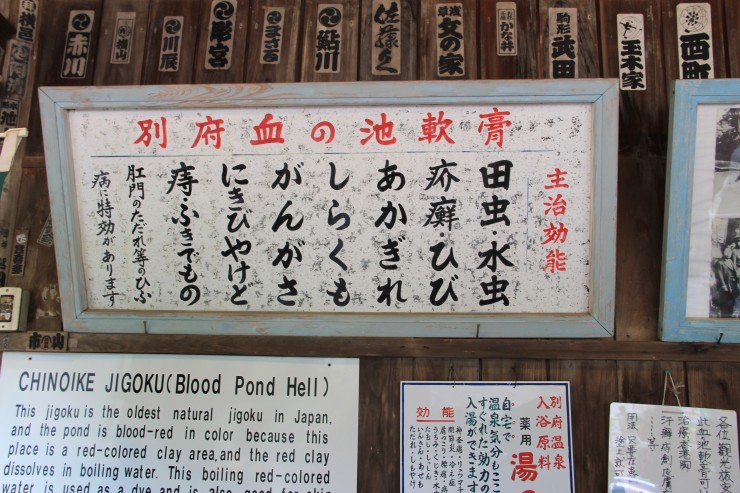 赤川
横山
川辰
彫宮
鮎川
佐藤久
女の家
かな井
駒形
武田
玉木家
西町
別府血の池軟膏
主治効能
田虫・水虫
疥癬・ひび
あかぎれ
しらくも
がんがさ
にきびやけど
痔・ふきでもの
肛門のただれ等のひふ
病に特効があります
CHINOIKE JIGOKU(Blood Pond Hell)
This jigoku is the oldest natural jigoku in Japan,
and the pond is blood-red in color because this
place is a red-colored clay area,and the red clay
dissolves in boiling water. This boiling red-colored
water is used as a dye and is also good for skin
別府温泉
入浴原料
薬用
湯
自宅で
温泉気分もここ
すぐれた効力の
入湯ができます
効能
各位観光旅客